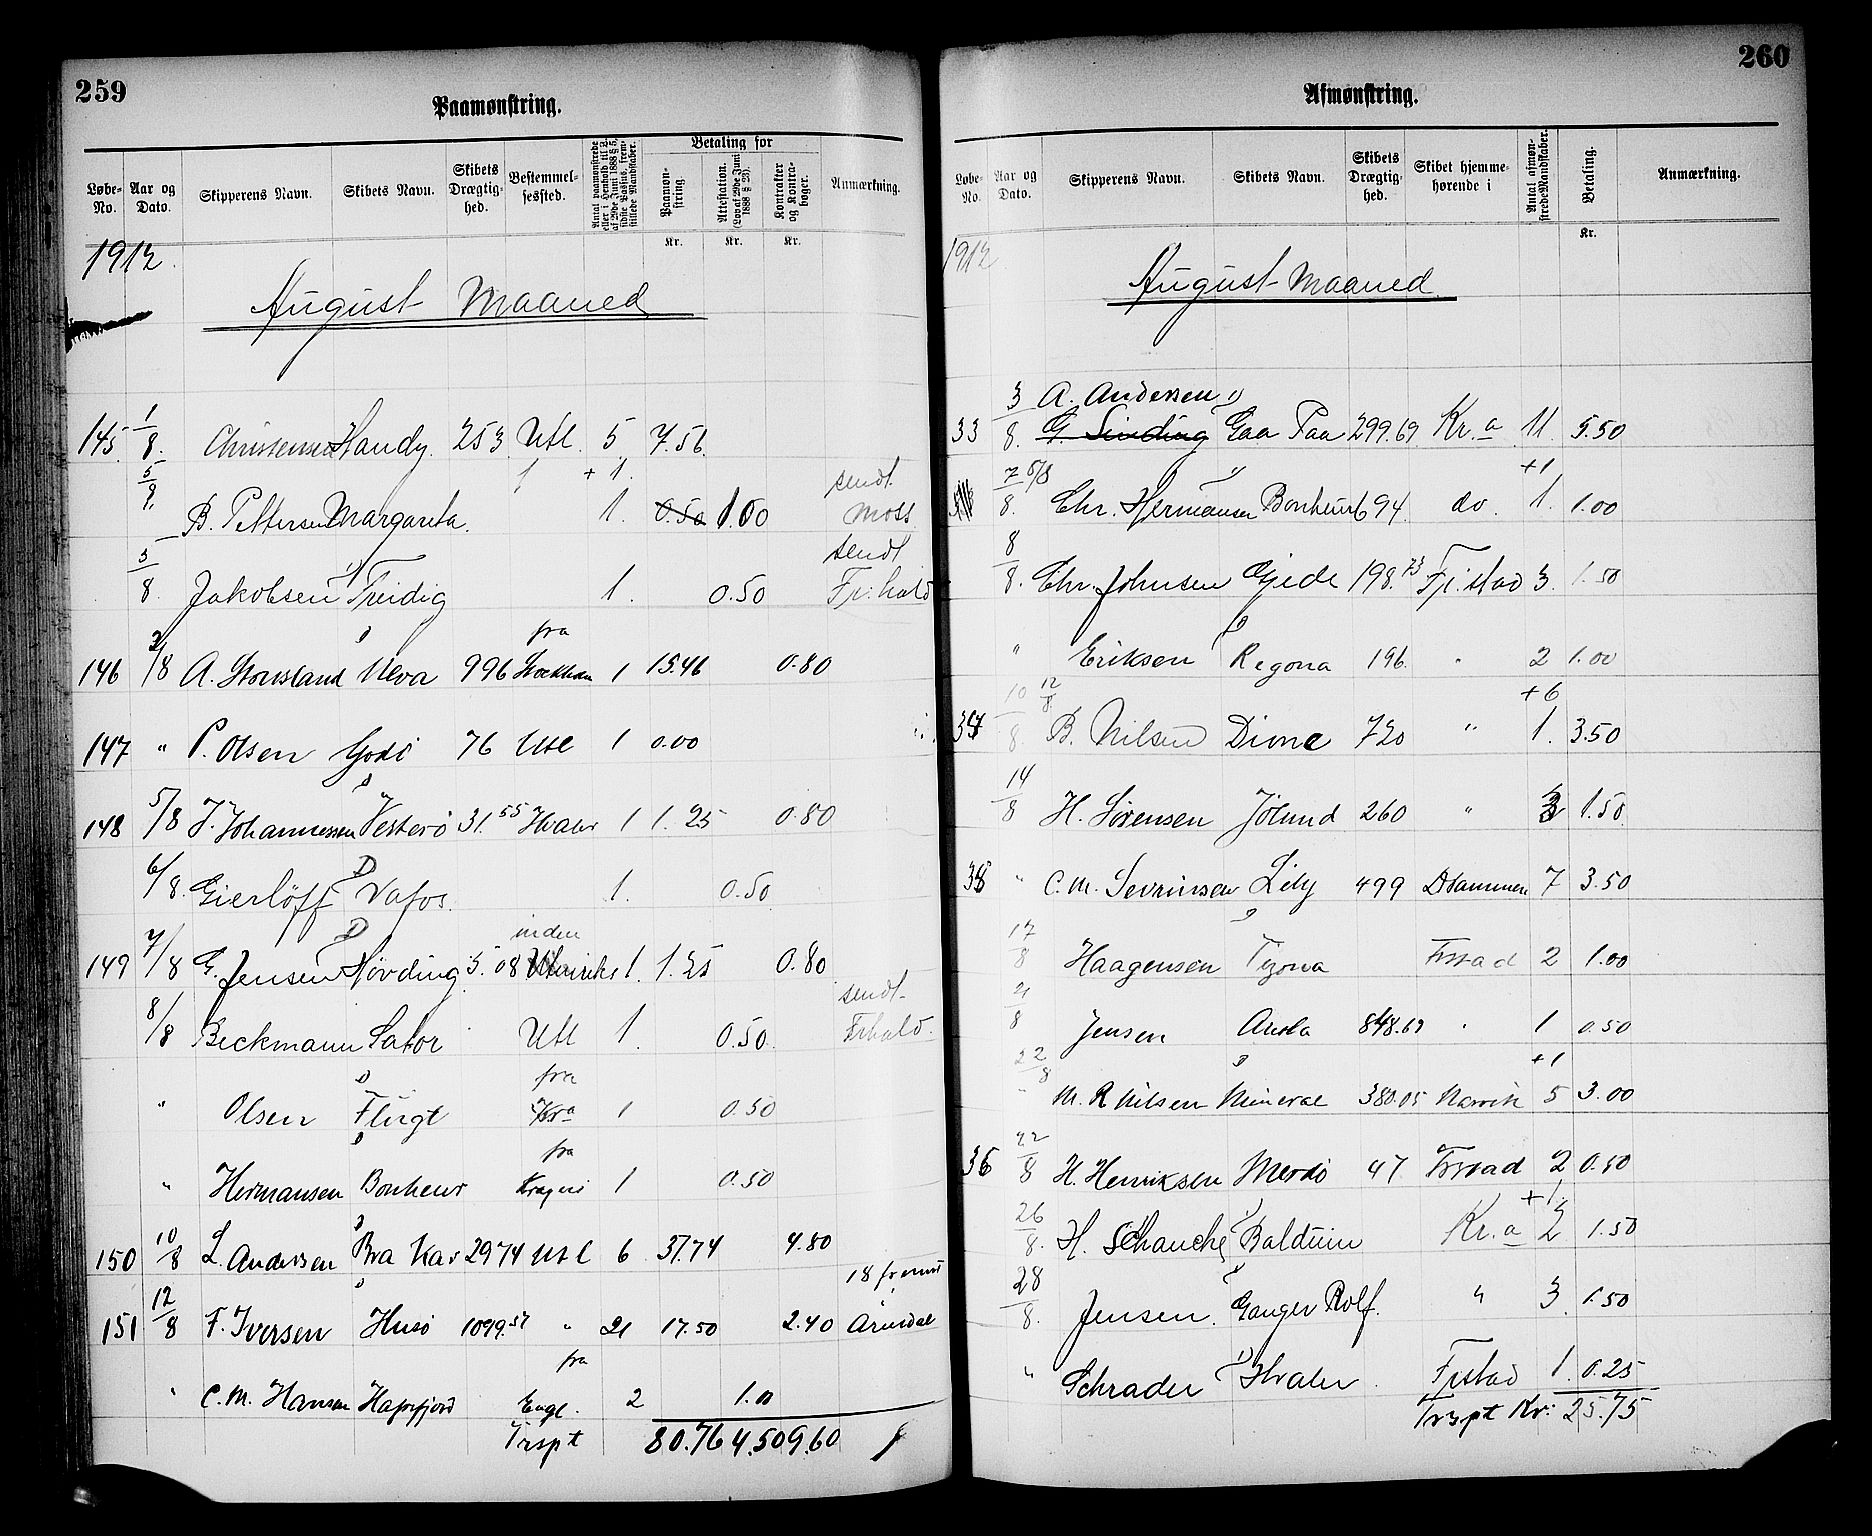 259
Paamønstring.
Løbe-No.
Aar og Dato.
Skipperens Navn.
Skibets Navn.
Skibets Drægtig-hed.
Bestemmel-sessted.
Betaling for
Paamøn-string.
Attestation.
Kontrakter og Kontra-bøger.
Anmærkning.
Kr. Kr. Kr.
1912.
August Maaned
145. 1/8. Christensen Handy. 253 Utl. 5 7.56.
+ 1.
5/8. B. Pettersen Margarita. 1. 0.50 1.00 sendt Moss
5/8. Jakobsen Freidig 1. 0.50 sendt Fr.hald
146 2/8 A. Stousland Neva 996 fra Stockholm 1 15.46 0.80
147 " P. Olsen Godö 76 Utl 1 0.00
148 5/8 J. Johannessen Vesterö 31.55 Hvaler 1 1.25 0.80
6/8. Gierlöff D Vafos. 1. 0.50
149 7/8 G. Jensen D Hövding 5.08 inden riks 1. 1.25 0.80
8/8 Beckmann Sator Utl 1. 0.50. sendt Frhald.
" Olsen Flugt fra Kra 1 0.50
" Hermansen Bonheur fra Kragerö 1 0.50
150 10/8 L. Andersen Bra Kar 2974 Utl 6 37.74 4.80
151 12/8 F. Iversen Husö 1099.57 " 21 17.50 2.40 18 fremst Arendal
" C. M. Hansen Hafrsfjord fra Engl. 2 1.0
Trspt 80.76 4.50 9.60
260
Afmønstring.
Løbe-No.
Aar og Dato.
Skipperens Navn.
Skibets Navn.
Skibets Drægtig-hed.
Skibet hjemme-hørende i
Antal afmøn-strede Mandskaber.
Betaling.
Anmærkning.
Kr.
1912
August Maaned.
33 3/8. A. Andersen G. Sinding Gaa Paa 299.69 Kr.a 11. 5.50
7/8. 5/8 Chr. Hermansen Bonheur 694. do. +1 1. 1.00
8/8. Chr. Johnsen Gjede 198.73 Fr.stad 3. 1.50
" Eriksen Regona 196. " 2 1.00
34 10/8. 12/8 B. Nilsen Dione 720 " +6 1. 3.50
14/8 H. Sörensen Jölund 260 " 3 1.50
35 " C. M. Sevrinsen Lily 499 Drammen 7 3.50
17/8 Haagensen Tyona Frstad 2 1.00
21/8 Jensen Ausla 848.69 " 1 0.50
22/8 M. R. Nilsen Mineral 380.05 Narvik +1 5 3.00
36 22/8 H. Henriksen Merdö 47 Frstad 2 0.50
26/8. H. Schanche Balduin Kr.a +1 2 1.50
28/8. Jensen. Ganger Rolf. " 3. 1.50
" Schrader Hvaler. Frstad 1. 0.25
Trspt Kr: 25.75